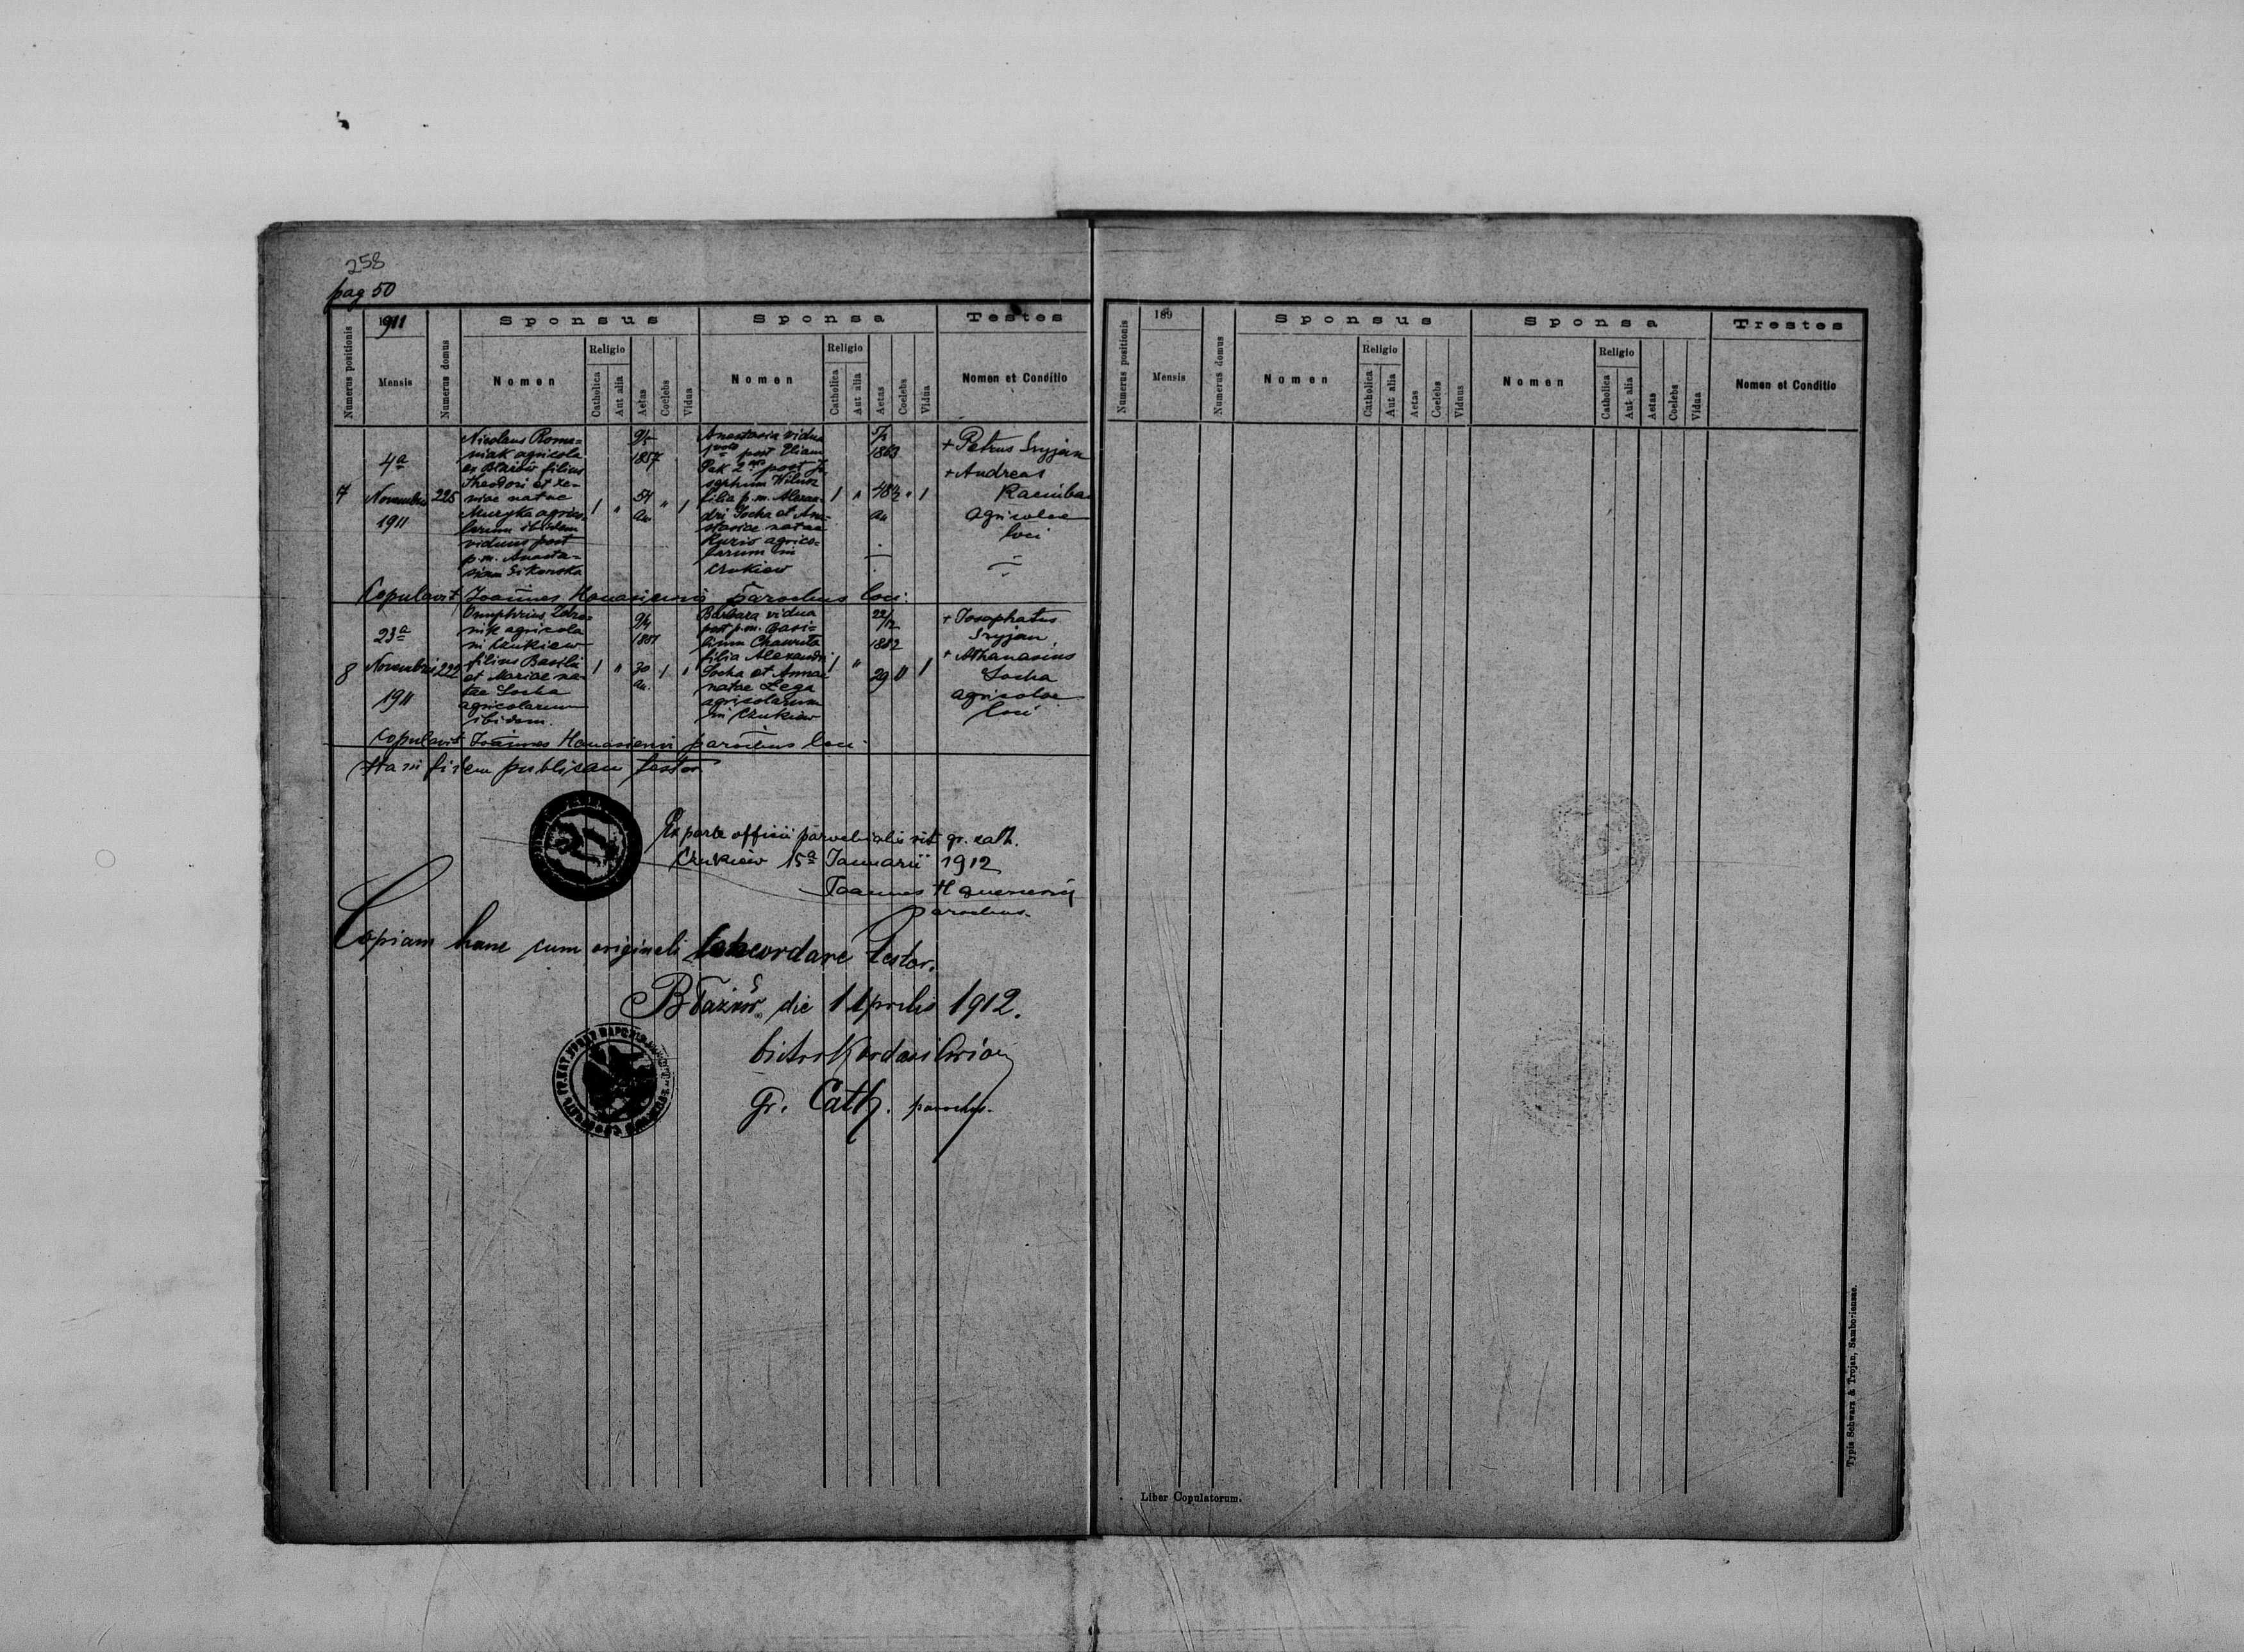 258
pag 50
Numerus positionis
1911
Mensis
Numerus domus
Sponsus
Nomen
Religio
Catholica
Aut alia
Aetas
Coelebs
Vidua
Sponsa
Nomen
Religio
Catholica
Aut alia
Aetas
Coelebs
Vidua
Testes
Nomen et Conditio
7
4a
Novembris
1911
225
Nicolaus Roma=
niak agricola
filius
Theodori et Xe=
niae natae
Muzyka agrico=
larum ibidem
viduus post
p. m. Anasta=
siam Sikorska
1 "
9/5
1857
54
an
" 1
Anastasia vidua
1voto post Eliam
Pak 2do post Jo
sephum
filia p. m. Alexan=
dri Socha et Ana
stasiae natae
agrico=
larum in
Czukiew
1 "
5/3
1863
48½
an
" 1
+ Petrus Sryjan
+ Andreas
agricolae
loci
Copulavit Joannes parochus loci.
8
23a
Novembris
1911
222
Omphrius
nik agricola
in Czukiew
filius Basilii
et Mariae na=
tae Socha
agricolarum
ibidem.
1 "
9/4
1881
30
an.
1
Barbara vidua
post p. m. Basi=
lium
filia Alexandri
Socha et Annae
natae Lega
agricolarum
in Czukiew
1 "
22/12
1882
29
" 1
+ Josaphatus
Sryjan
+ Athanasius
Socha
agricolae
loci
Copulavit Joannes parochus loci.
Ita in fidem publicam testor
Ex parte officii parochialis rit. gr. cath.
Czukiew 15a Januarii 1912
Joannes
parochus.
Copiam hanc cum originali concordare testor.
Błażów die 1 Aprilis 1912.
gr. Cath. parochus.
Numerus positionis
189
Mensis
Numerus domus
Sponsus
Nomen
Religio
Catholica
Aut alia
Aetas
Coelebs
Viduus
Sponsa
Nomen
Religio
Catholica
Aut alia
Aetas
Coelebs
Vidua
Trestes
Nomen et Conditio
Liber Copulatorum.
Typis Schwarz & Trojan, Samboriensae.